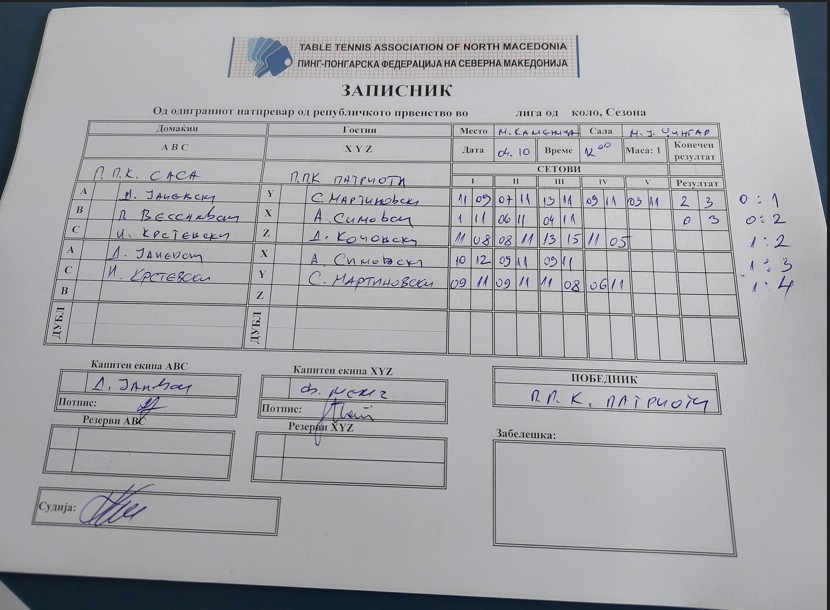 TABLE TENNIS ASSOCIATION OF NORTH MACEDONIA
ПИНГ-ПОНГАРСКА ФЕДЕРАЦИЈА НА СЕВЕРНА МАКЕДОНИЈА
ЗАПИСНИК
Од одиграниот натпревар од републичкото првенство во лига од коло, Сезона
Домаќин Гостин Место М. КАМЕНИЦА Сала М. Ј. ЧИНГАР
A B C X Y Z Дата 04.10 Време 12 00 Маса: 1 Конечен резултат
П.П.К. САСА П.ПК ПАТРИОТИ СЕТОВИ
I II III IV V Резултат
A Д. ЈАНЕВСКИ Y С. МАРТИНОВСКИ 11 09 07 11 13 11 09 11 03 11 2 3 0 : 1
B X А. СИМОВСКИ 1 11 06 11 04 11 0 3 0 : 2
C И. КРСТЕВСКИ Z Д. КОЧОВСКИ 11 08 08 11 13 15 11 05 1 : 2
A Д. ЈАНЕВСКИ X А. СИМОВСКИ 10 12 09 11 09 11 1 : 3
C И. КРСТЕВСКИ Y С. МАРТИНОВСКИ 09 11 09 11 11 08 06 11 1 : 4
B Z
ДУБЛ ДУБЛ
Капитен екипа ABC Капитен екипа XYZ ПОБЕДНИК
П.П.К. ПАТРИОТИ
Потпис: Потпис:
Резерви ABC Резерви XYZ Забелешка:
Судија: